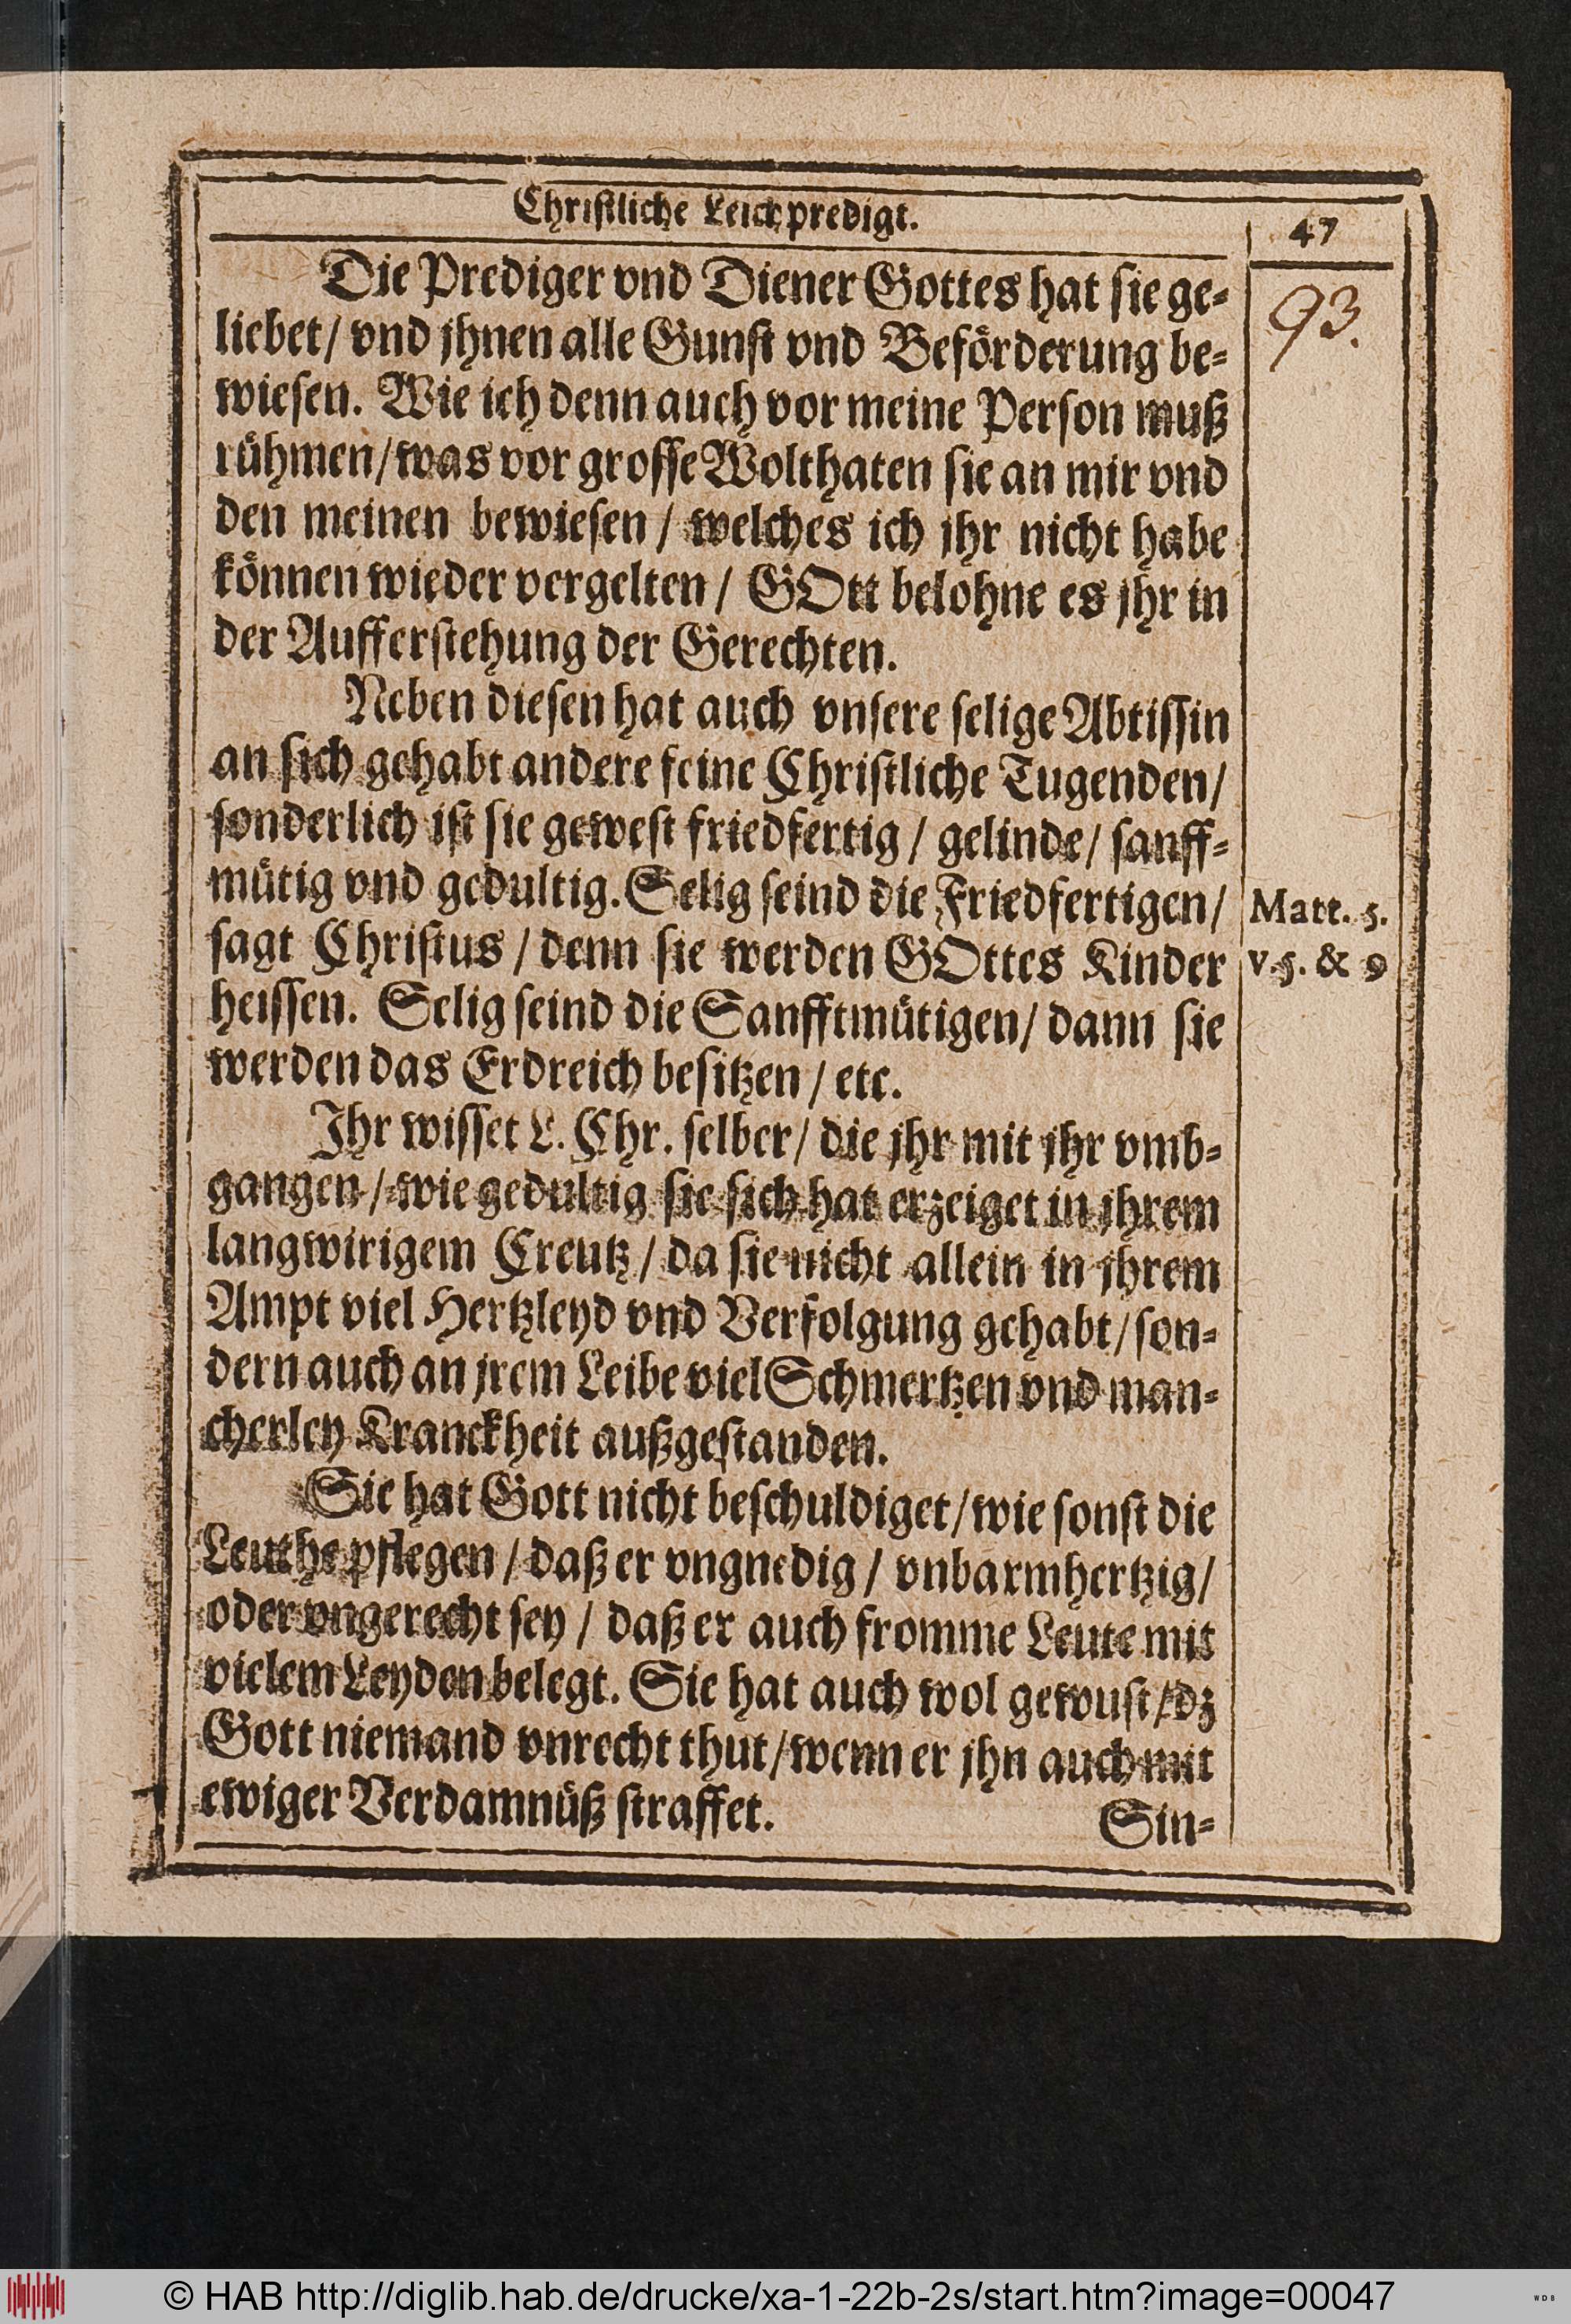 Christliche Leichpredigt.
47
93.
Die Prediger vnd Diener Gottes hat sie ge-
liebet/ vnd jhnen alle Gunst vnd Beförderung be-
wiesen. Wie ich denn auch vor meine Person muß
rühmen/ was vor grosse Wolthaten sie an mir vnd
den meinen bewiesen/ welches ich jhr nicht habe
können wieder vergelten/ GOtt belohne es jhr in
der Aufferstehung der Gerechten.
Neben diesen hat auch vnsere selige Abtissin
an sich gehabt andere feine Christliche Tugenden/
sonderlich ist sie gewest friedfertig/ gelinde/ sanff-
mütig vnd gedultig. Selig seind die Friedfertigen/
Matt. 5.
sagt Christus/ denn sie werden GOttes Kinder
v. 5. & 9
heissen. Selig seind die Sanfftmütigen/ dann sie
werden das Erdreich besitzen/ etc.
Ihr wisset L. Chr. selber/ die jhr mit jhr vmb-
gangen/ wie gedultig sie sich hat erzeiget in jhrem
langwirigem Creutz/ da sie nicht allein in jhrem
Ampt viel Hertzleyd vnd Verfolgung gehabt/ son-
dern auch an jrem Leibe viel Schmertzen vnd man-
cherley Kranckheit außgestanden.
Sie hat Gott nicht beschuldiget/ wie sonst die
Leuthe pflegen/ daß er vngnedig/ vnbarmhertzig/
oder vngerecht sey/ daß er auch fromme Leute mit
vielem Leyden belegt. Sie hat auch wol gewust/ dz
Gott niemand vnrecht thut/ wenn er jhn auch mit
ewiger Verdamnüß straffet.
Sin-
© HAB http://diglib.hab.de/drucke/xa-1-22b-2s/start.htm?image=00047
WDB